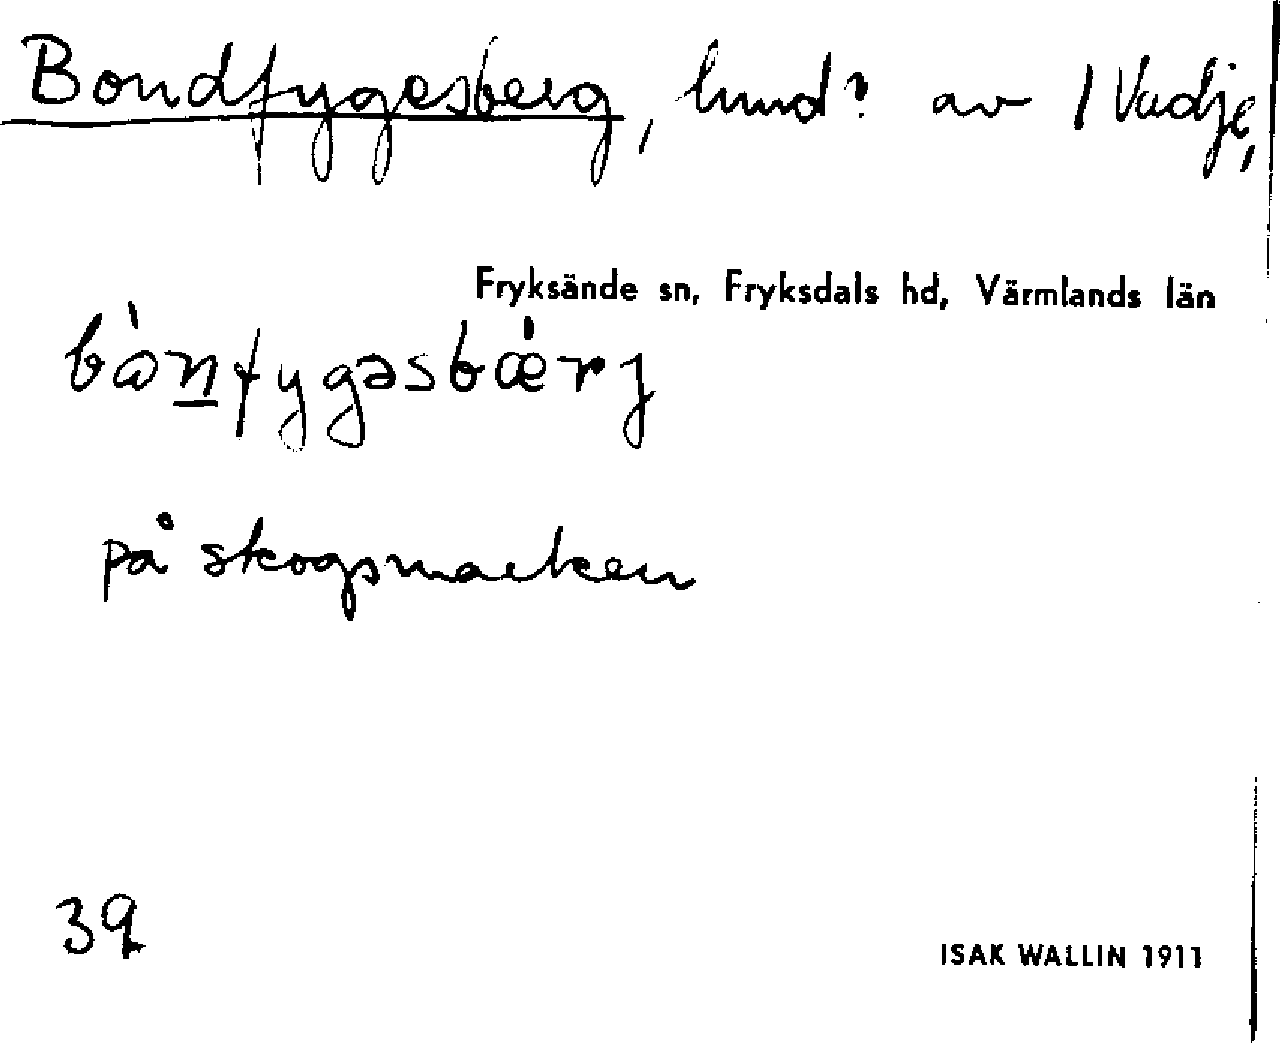 Bondfygesberg, lund? av 1 Vadje,
Fryksände sn, Fryksdals hd, Värmlands län
bònfygəsbǽrj
på skogsmarken
39
ISAK WALLIN 1911